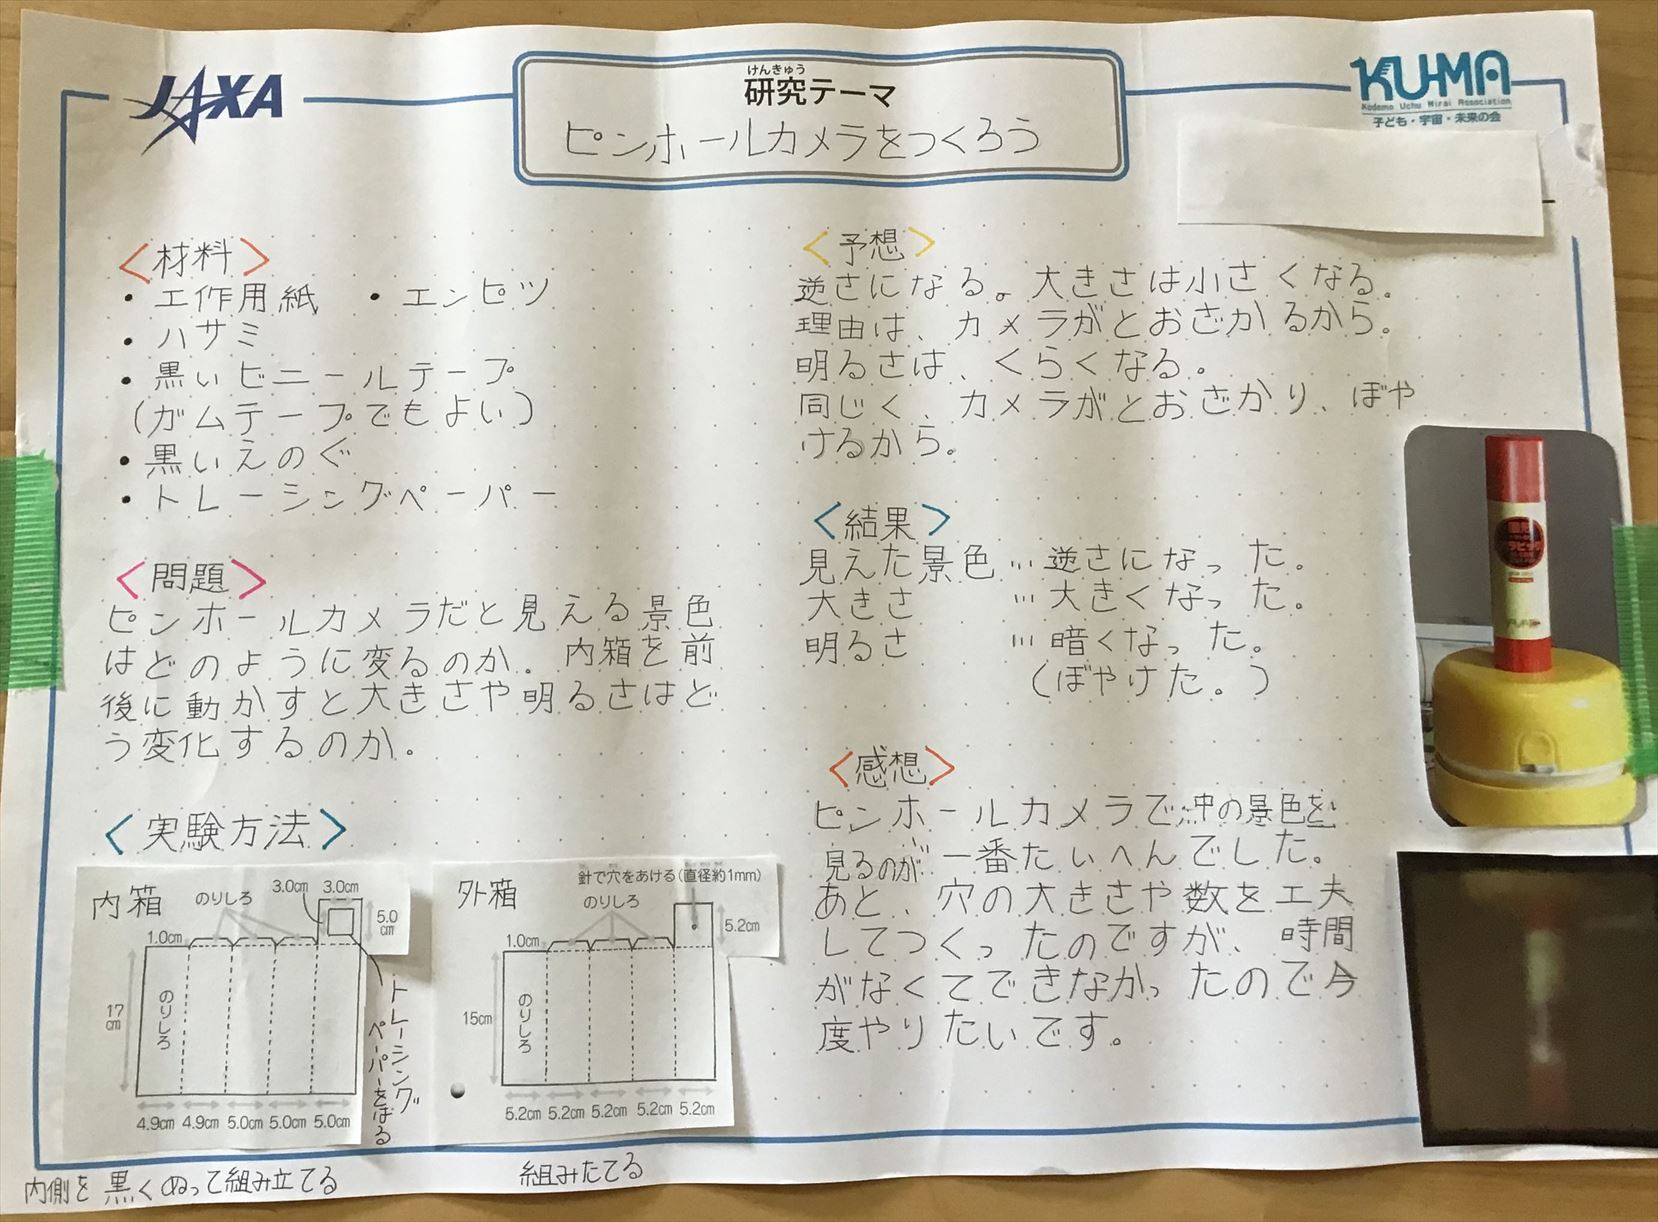 JAXA
けんきゅう
研究テーマ
ピンホールカメラをつくろう
KU-MA
Kodomo Uchu Mirai Association
子ども・宇宙・未来の会
<材料>
・工作用紙 ・エンピツ
・ハサミ
・黒いビニールテープ
(ガムテープでもよい)
・黒いえのぐ
・トレーシングペーパー
<問題>
ピンホールカメラだと見える景色
はどのように変るのか。内箱を前
後に動かすと大きさや明るさはど
う変化するのか。
<実験方法>
内箱
のりしろ
3.0cm 3.0cm
5.0
cm
1.0cm
17
cm
のりしろ
4.9cm 4.9cm 5.0cm 5.0cm 5.0cm
トレーシング
ペーパーをはる
内側を黒くぬって組み立てる
外箱
針で穴をあける(直径約1mm)
のりしろ
5.2cm
1.0cm
15cm
のりしろ
5.2cm 5.2cm 5.2cm 5.2cm 5.2cm
組みたてる
<予想>
逆さになる。大きさは小さくなる。
理由は、カメラがとおざかるから。
明るさは、くらくなる。
同じく、カメラがとおざかり、ぼや
けるから。
<結果>
見えた景色…逆さになった。
大きさ …大きくなった。
明るさ …暗くなった。
(ぼやけた。)
<感想>
ピンホールカメラで中の景色を
見るのが一番たいへんでした。
あと、穴の大きさや数を工夫
してつくったのですが、時間
がなくてできなかったので今
度やりたいです。